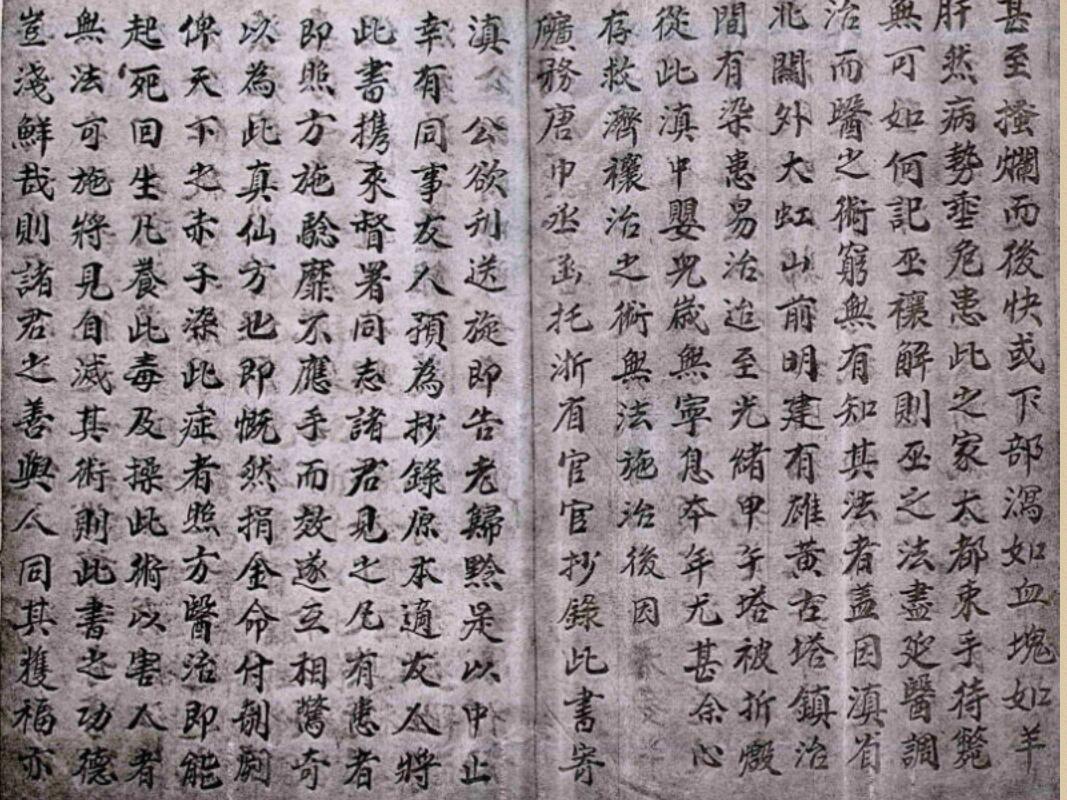 甚至搔爛而後快或下部瀉如血塊如羊
肝然病勢垂危患此之家太都束手待斃
無可如何記巫禳解則巫之法盡延醫調
治而醫之術窮無有知其法者蓋因滇省
北關外大虹山前明建有雄黃古塔鎮治
間有染患易治迨至光緒甲午塔被折燬
從此滇中嬰兒歲無寧息本年尤甚余心
存救濟禳治之術無法施治後因
礦務唐中丞函托浙省官官抄錄此書寄
滇 公欲刋送旋即告老歸黔是以中止
幸有同事友人預為抄錄原本適友人將
此書攜來督署同志諸君見之凡有患者
即照方施驗靡不應手而效遂互相驚奇
以為此真仙方也即慨然捐金命付剞劂
俾天下之赤子染此症者照方醫治即能
起死回生凡養此毒及操此術以害人者
無法可施將見自滅其術則此書之功德
豈淺鮮哉則諸君之善與人同其獲福亦